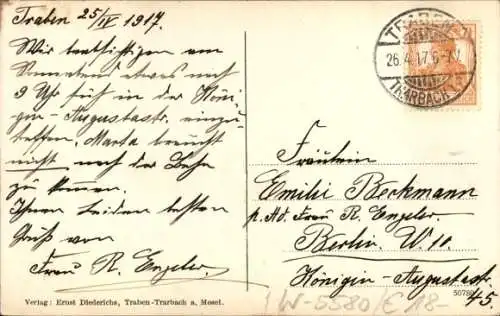 Traben 25/IV 1917.
Wir beabsichtigen am
Sonnabend etwas nach
9 Uhr früh in der Köni-
gin-Augustastr. einzu-
treffen. Marta braucht
nicht nach der Bahn
zu kommen.
Ihnen beiden besten
Gruß von
Frau R. Engeler.
TRABEN
26.4.17.6-7 V.
TRARBACH
Fräulein
Emilie Berkmann
p. Ad. Frau R. Engeler.
Berlin. W 10.
Königin-Augustastr.
45.
Verlag: Ernst Diederichs, Traben-Trarbach a. Mosel.
50780
W-5580/E 18-